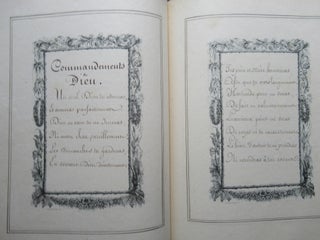 Commandements
de
Dieu.
Un seul Dieu tu adoreras
et aimeras parfaitement
Dieu en vain tu ne Jureras
Ni autre chose pareillement
Les Dimanches tu garderas
En servant Dieu dévotement
Tes père et Mère honoreras
Afin que tu vives longuement
Homicide point ne seras
De fait ni volontairement
Luxurieux point ne seras
De corps ni de consentement
Le bien d'autrui tu ne prendras
Ni retiendras à ton escient